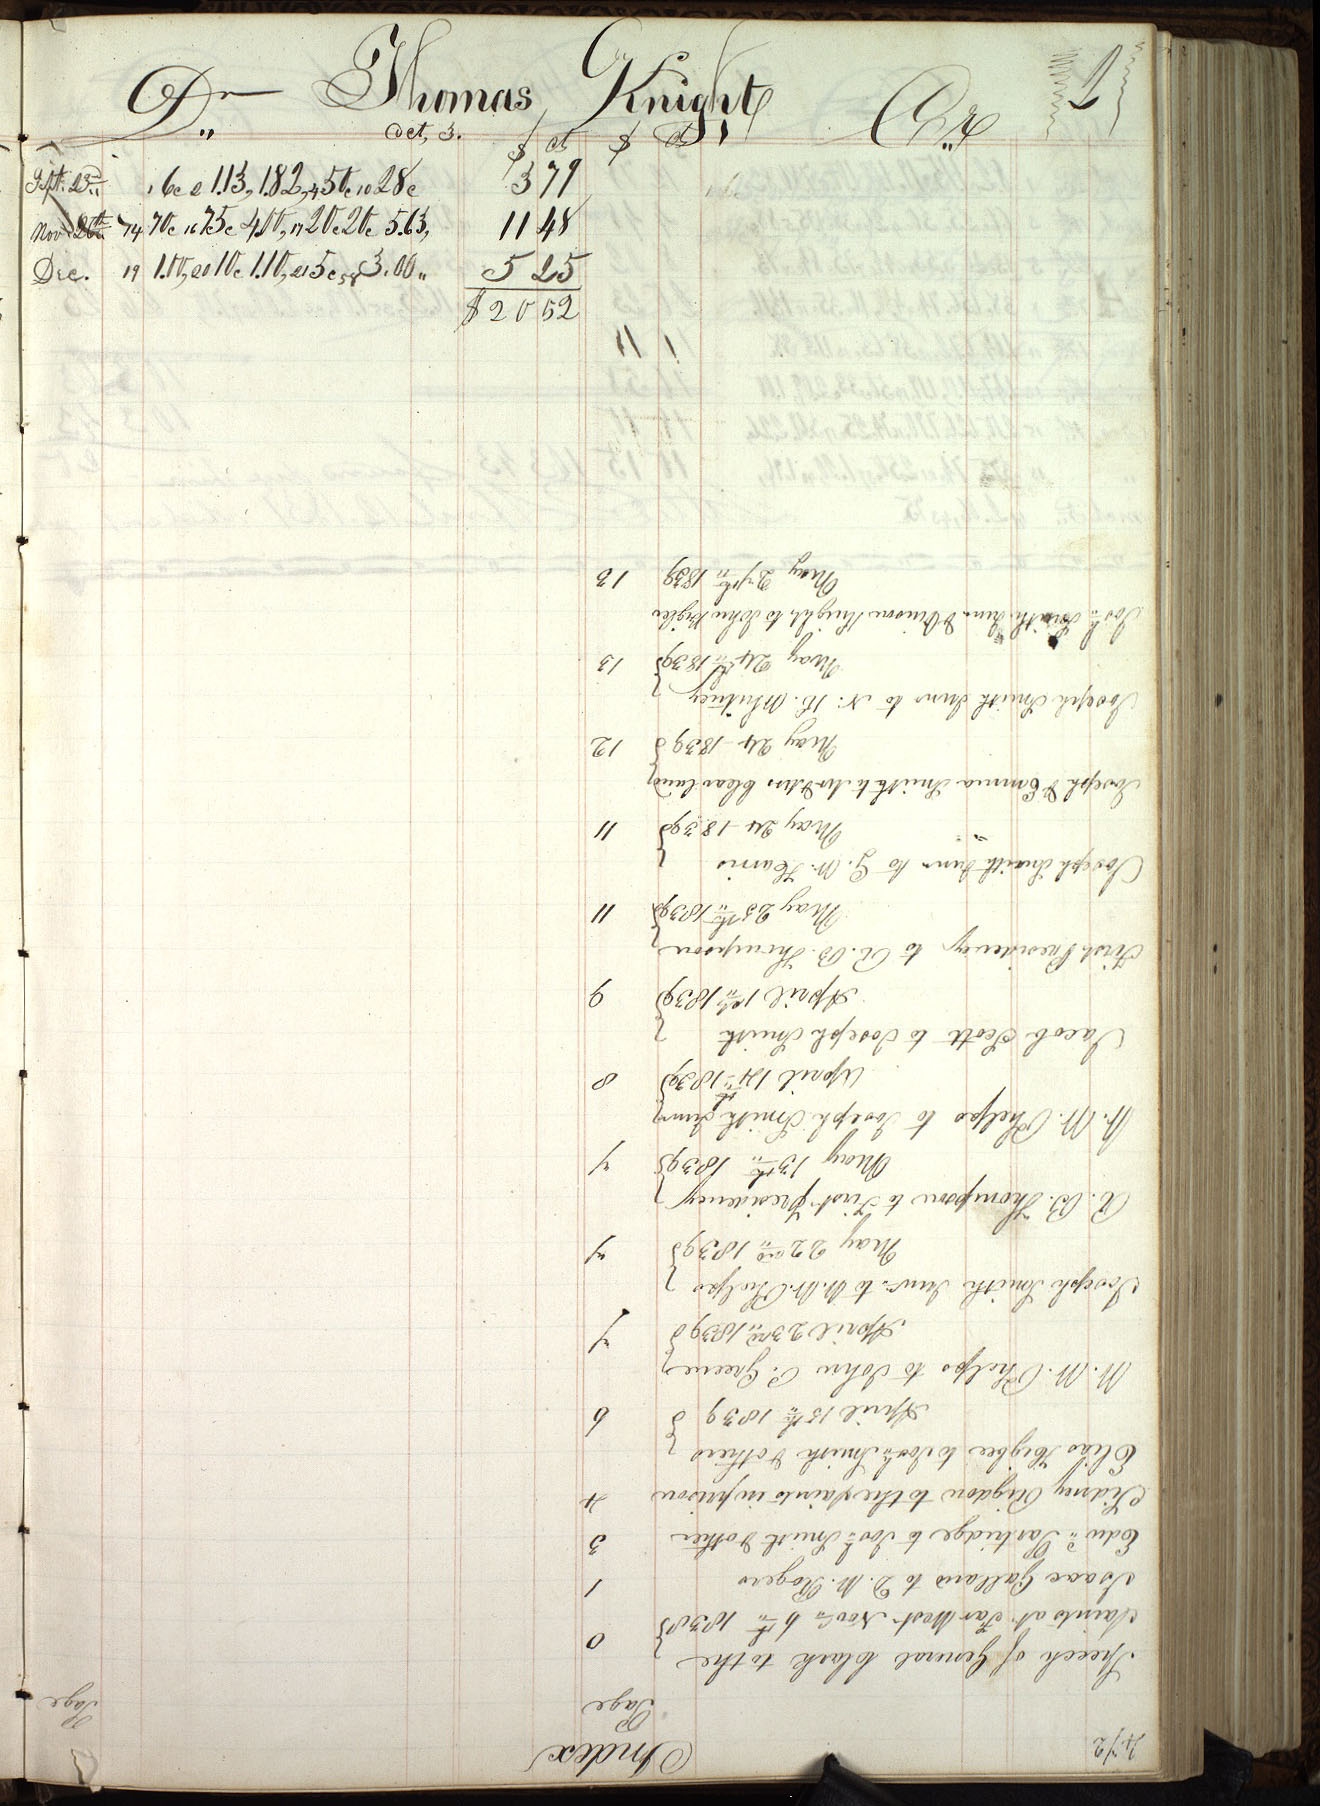 Dr Thomas Knight, Cr. 1
Oct, 3. $ ct $ ct
Sept. 23d 6c 1.13, 1.82, 28c 3 79
Nov. 26th 74 70c 16 75c 4.00, 17 20c 20c 5.63, 11 48
Dec. 19 1.00, 20 10c 1.10, 21 5c 3.00 5 25
$20 52
472
Index
Page Page
Speech of General Clark to the
Saints at Far West Nov. 6th 1838 } 0
Isaac Galland to D. W. Rogers 1
Edwd Partridge to Jos. Smith & others 3
Sidney Rigdon to the saints in prison 4
Elias Higbee to Jos. Smith & others }
April 15th 1839 } 6
W. W. Phelps to John P. Greene }
April 23rd 1839 } 7
Joseph Smith Junr. to W. W. Phelps }
May 22nd 1839 } 7
R. B. Thompson to First presidency }
May 13th 1839 } 7
W. W. Phelps to Joseph Smith Junr }
April 1st 1839 } 8
Jacob Scott to Joseph Smith }
April 1st 1839 } 9
First Presidency to R. B. Thompson }
May 25th 1839 } 11
Joseph Smith Junr to G. W. Harris }
May 24 1839 } 11
Joseph & Emma Smith to Mr & Mrs Cleaveland }
May 24 1839 } 12
Joseph Smith Junr to N. K. Whitney }
May 24th 1839 } 13
Jos. Smith Junr. & Vinson Knight to John Bigler
May 27th 1839 13